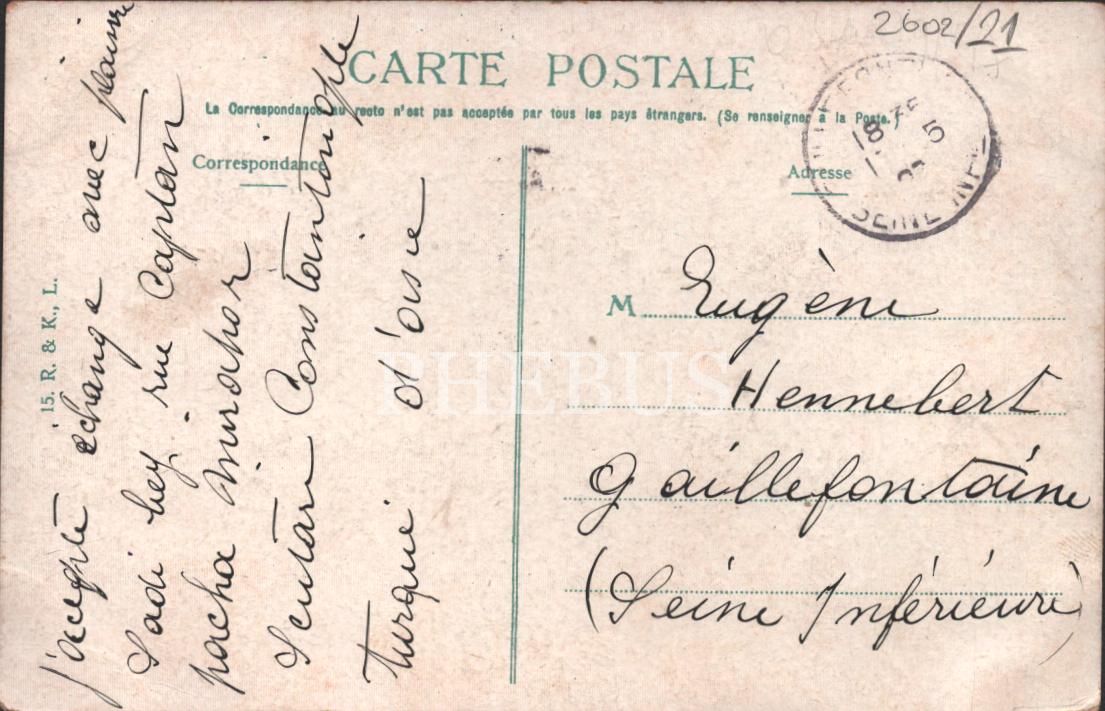 2602/21
CARTE POSTALE
La Correspondance au recto n'est pas acceptée par tous les pays étrangers. (Se renseigner à la Poste.)
Correspondance
Adresse
15. R. & K., L.
j'accepte echange avec plaisir
Sadi bey rue Captan
pacha
Scutari Constantinople
turquie d'asie
M Eugéne
Hennebert
Gaillefontaine
(Seine Inférieure)
SEINE INF
PHEBUS